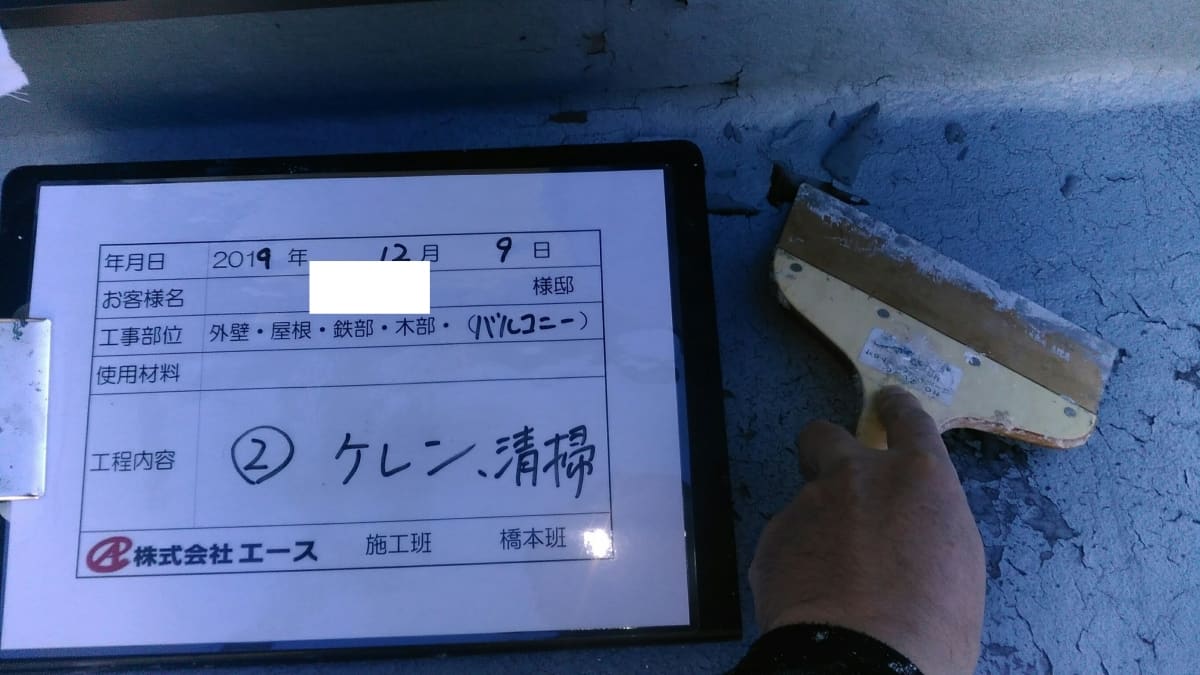 年月日 2019年 12月 9日
お客様名 様邸
工事部位 外壁・屋根・鉄部・木部・（バルコニー）
使用材料
工程内容 ② ケレン、清掃
株式会社エース 施工班 橋本班